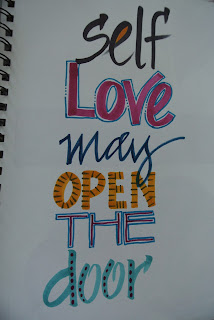 self
LOVE
may
OPEN
THE
door